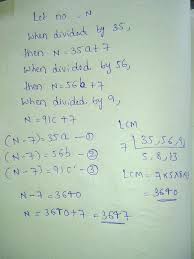 Let no. - N
When divided by 35,
then N = 35a + 7
When divided by 56,
then N = 56b + 7
When divided by 9,
N = 91c + 7
(N-7) = 35a - ①
(N-7) = 56b - ②
(N-7) = 91c - ③
N-7 = 3640
N = 3640+7 = 3647
LCM
7 35, 56, 91
5, 8, 13
LCM = 7x5x8x13
= 3640